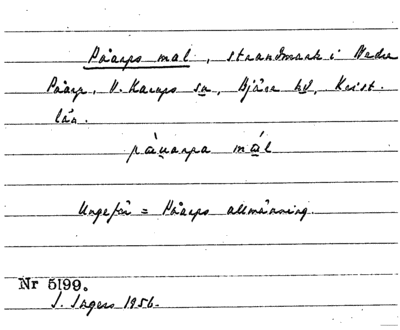 Påarps mal, strandmark i Nedre
Påarp, V. Karups sn, Bjäre hd, Krist.
län.
påuarpa mál
Ungefär = Påarps allmänning.
Nr 5199.
I. Ingers 1956.